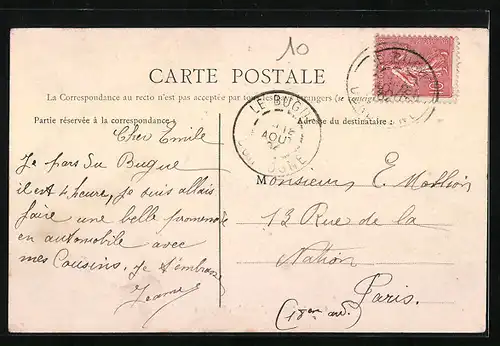 10
CARTE POSTALE
La Correspondance au recto n'est pas acceptée par tous les pays étrangers (se
Partie réservée à la correspondance
Adresse du destinataire
LE BUGUE
AOUT
DOGNE
Cher Emile
Je pars du Bugue
il est 4 heure, je
faire une belle promenade
en automobile avec
mes Cousins. Je t'embrasse
Jeanne
Monsieur E.
13 Rue de la
Nation
Paris.